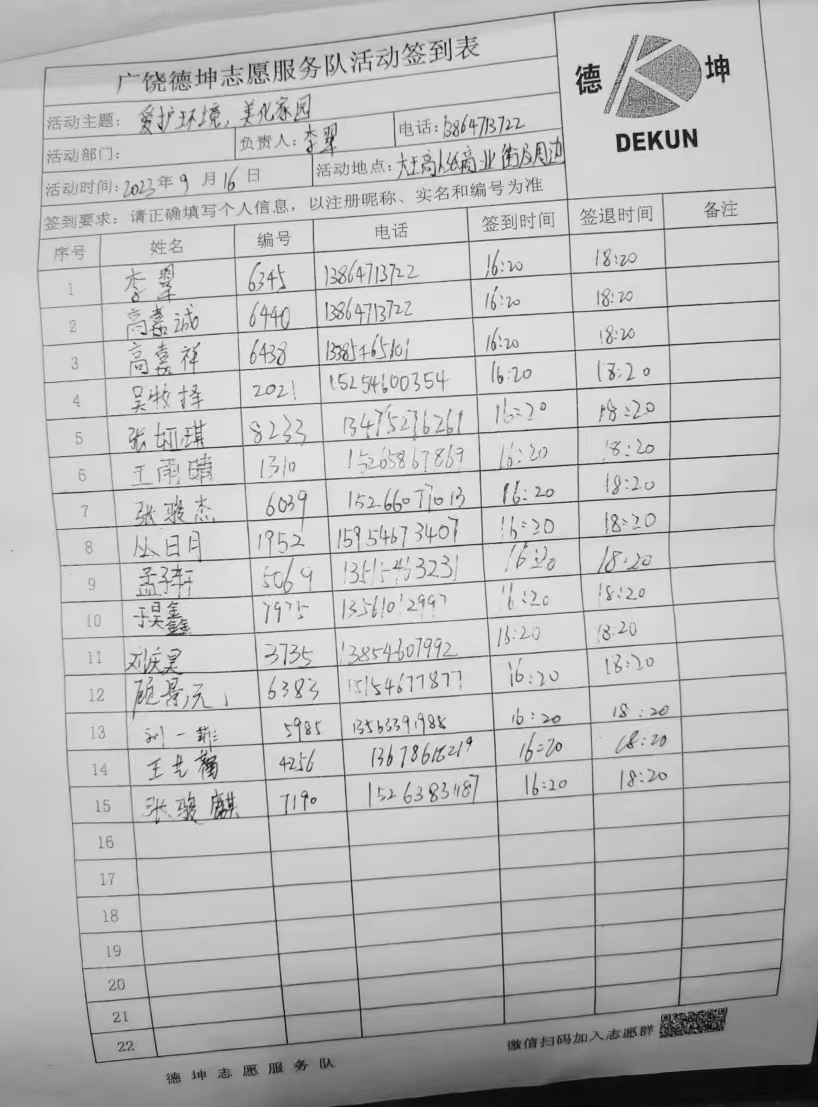 广饶德坤志愿服务队活动签到表
德 坤
DEKUN
活动主题：爱护环境，美化家园
活动部门： 负责人：李翠 电话：13864713722
活动时间：2023年9月16日 活动地点：大王高人纸商业街及周边
签到要求：请正确填写个人信息，以注册昵称、实名和编号为准
序号 姓名 编号 电话 签到时间 签退时间 备注
1 李翠 6345 13864713722 16:20 18:20
2 高嘉诚 6440 13864713722 16:20 18:20
3 高嘉祥 6438 13385465101 16:20 18:20
4 吴牧择 2021 15254600354 16:20 18:20
5 张娅琪 8233 13475276261 16:20 18:20
6 王雨晴 1310 15265867869 16:20 18:20
7 张骏杰 6039 15266077013 16:20 18:20
8 丛日月 1952 15954673407 16:20 18:20
9 孟子轩 5069 13515463231 16:20 18:20
10 于昊鑫 7975 13561012997 16:20 18:20
11 刘庆昊 3735 13854607992 16:20 18:20
12 顾景元 6383 15154677877 16:20 18:20
13 刘一菲 5985 13563391988 16:20 18:20
14 王艺 4256 13678618219 16:20 18:20
15 张骏麒 7190 15263831187 16:20 18:20
16
17
18
19
20
21
22
德坤志愿服务队 微信扫码加入志愿群